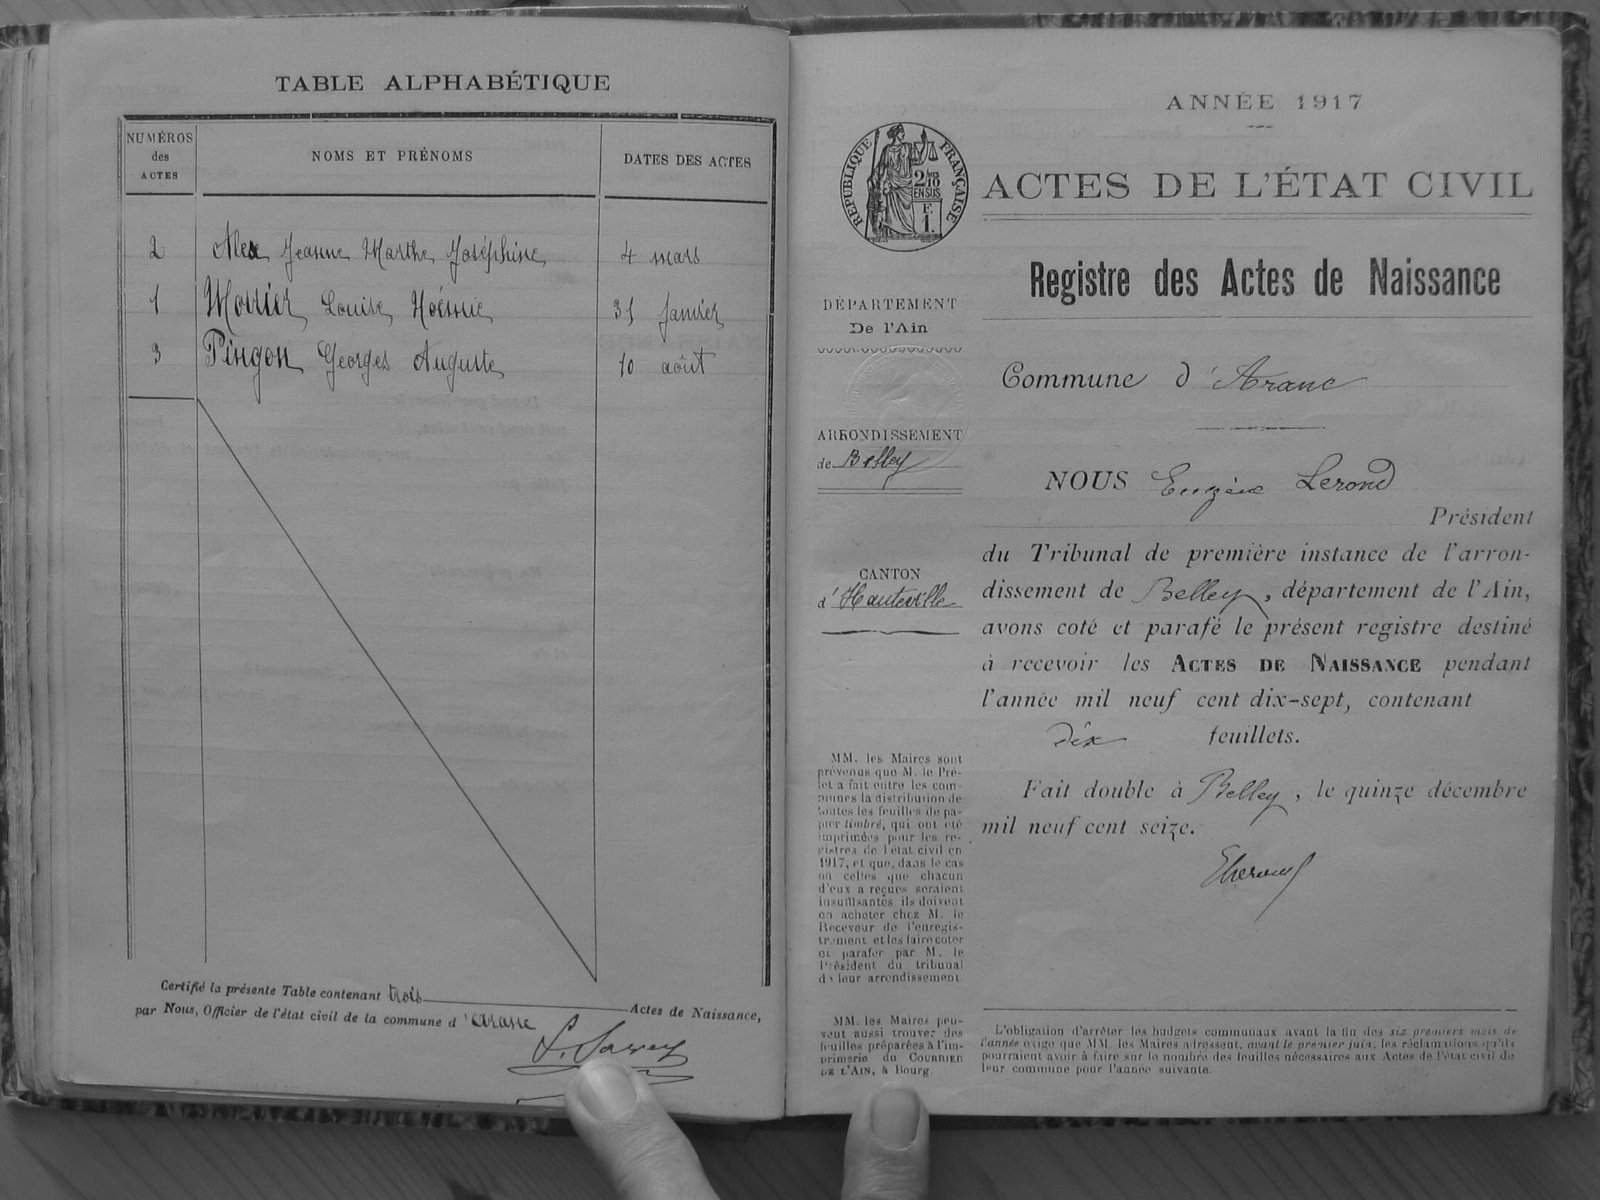 TABLE ALPHABÉTIQUE
NUMÉROS
des
ACTES
NOMS ET PRÉNOMS
DATES DES ACTES
2 Alex Jeanne Marthe Joséphine 4 mars
1 Morrier Louise Noémie 31 janvier
3 Pingon Georges Auguste 10 août
Certifié la présente Table contenant trois Actes de Naissance,
par Nous, Officier de l'état civil de la commune d'Aranc
ANNÉE 1917
RÉPUBLIQUE FRANÇAISE
2/10
EN SUS
F.
1.
ACTES DE L'ÉTAT CIVIL
Registre des Actes de Naissance
DÉPARTEMENT
De l'Ain
ARRONDISSEMENT
de Belley
CANTON
d'Hauteville
MM. les Maires sont
prévenus que M. le Pré-
fet a fait entre les com-
munes la distribution de
toutes les feuilles de pa-
pier timbré, qui ont été
imprimées pour les re-
gistres de l'état civil en
1917, et que, dans le cas
où celles que chacun
d'eux a reçues seraient
insuffisantes ils doivent
en acheter chez M. le
Receveur de l'enregis-
trement et les faire coter
et parafer par M. le
Président du tribunal
de leur arrondissement
MM. les Maires peu-
vent aussi trouver des
feuilles préparées à l'im-
primerie du COURRIER
DE L'AIN, à Bourg.
Commune d'Aranc
NOUS Eugène Lerond
Président
du Tribunal de première instance de l'arron-
dissement de Belley, département de l'Ain,
avons coté et parafé le présent registre destiné
à recevoir les ACTES DE NAISSANCE pendant
l'année mil neuf cent dix-sept, contenant
dix feuillets.
Fait double à Belley, le quinze décembre
mil neuf cent seize.
L'obligation d'arrêter les budgets communaux avant la fin des six premiers mois de
l'année exige que MM. les Maires adressent, avant le premier juin, les réclamations qu'ils
pourraient avoir à faire sur le nombre des feuilles nécessaires aux Actes de l'état civil de
leur commune pour l'année suivante.